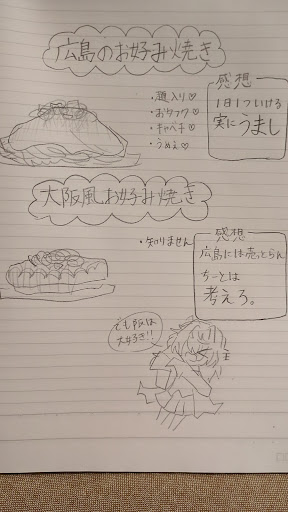 広島のお好み焼き
・麺入り♡
・おタフク♡
・キャベチ♡
・うめぇ♡
感想
1日1ついける
実にうまし
大阪風お好み焼き
・知りません
感想
広島には売っとらん
ちーとは
考えろ。
でも阪は
大好き!!